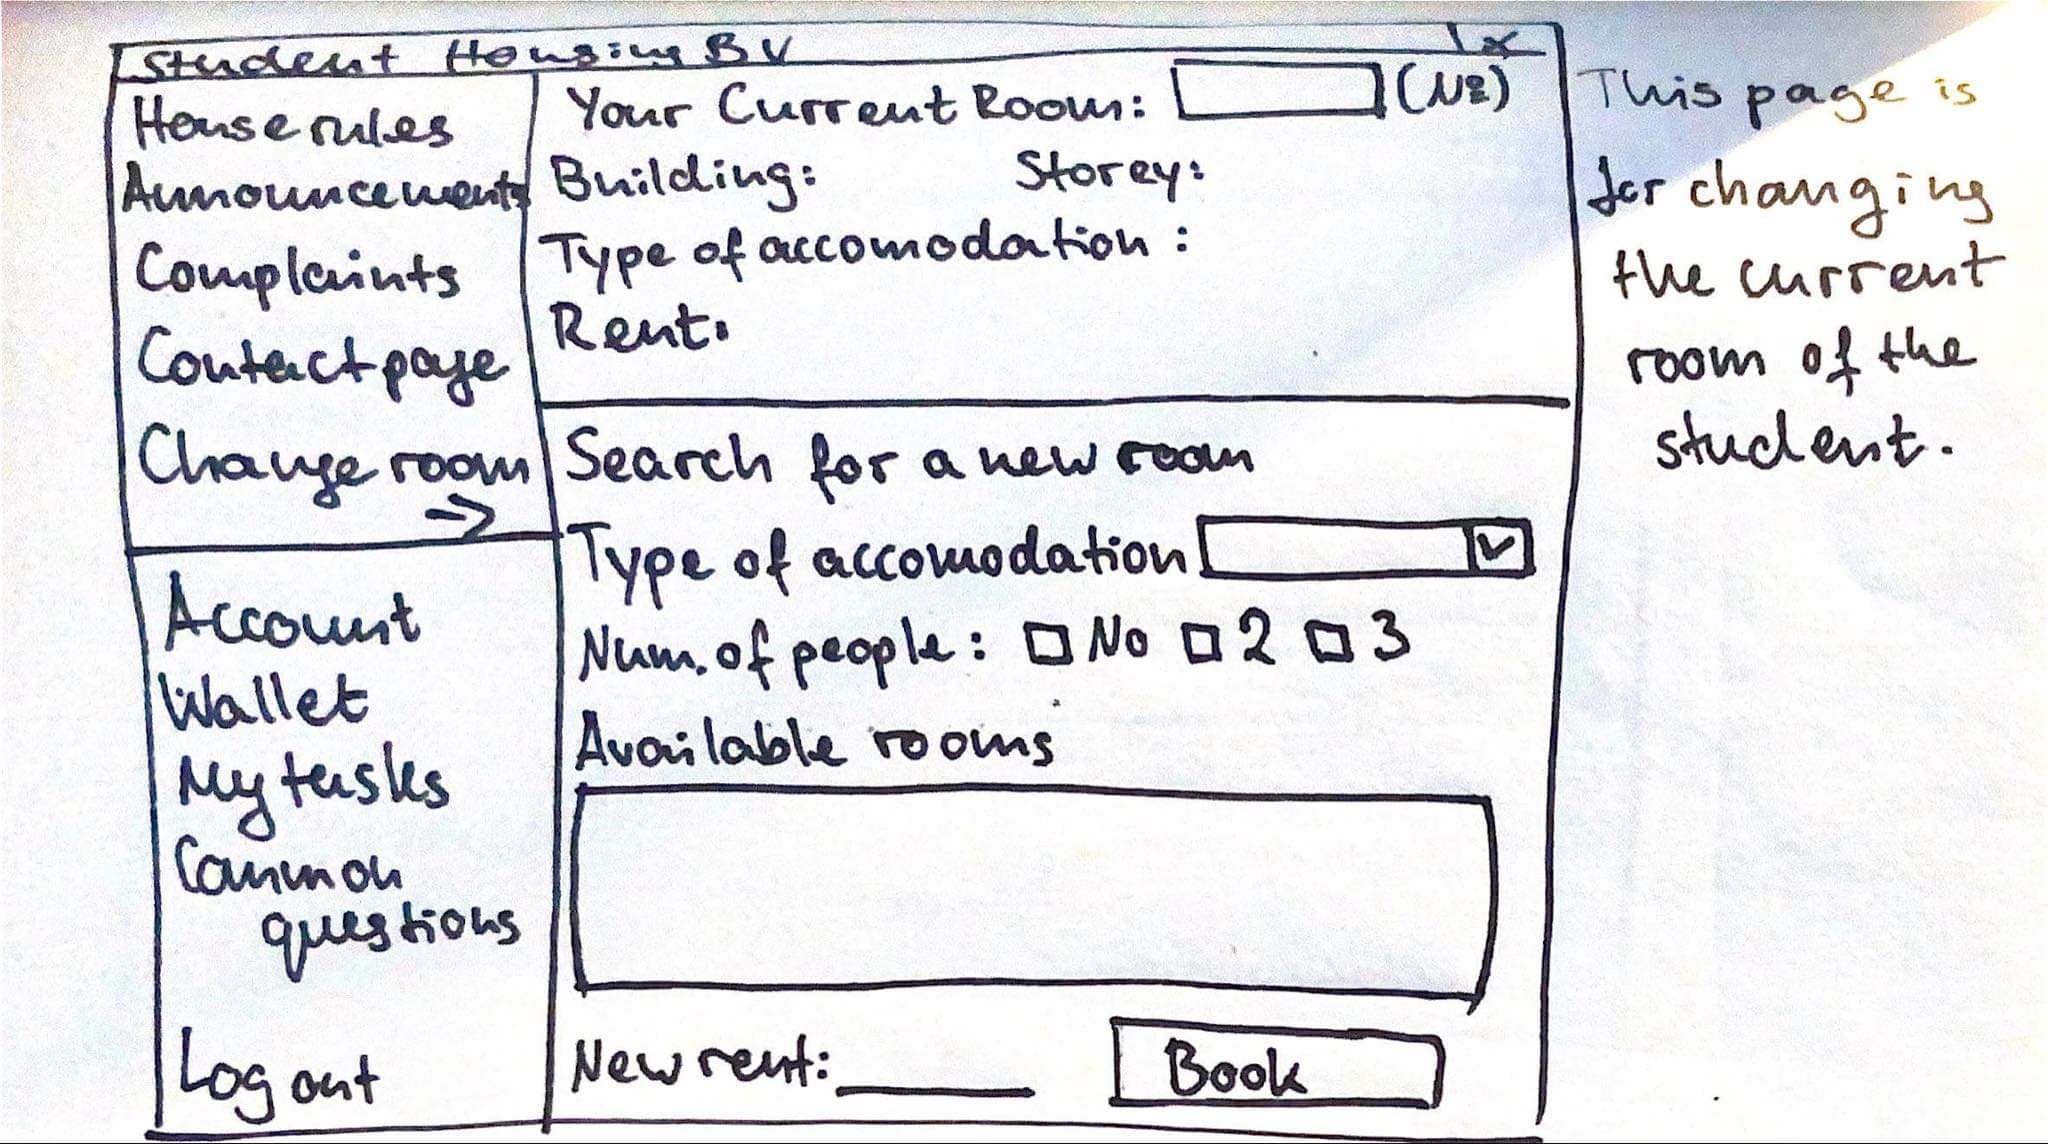 Student Housing BV x
House rules
Announcements
Complaints
Contact page
Change room
→
Account
Wallet
My tasks
Common
questions
Log out
Your Current Room: (№)
Building: Storey:
Type of accomodation :
Rent:
Search for a new room
Type of accomodation
Num. of people : No 2 3
Available rooms
New rent:
Book
This page is
for changing
the current
room of the
student.